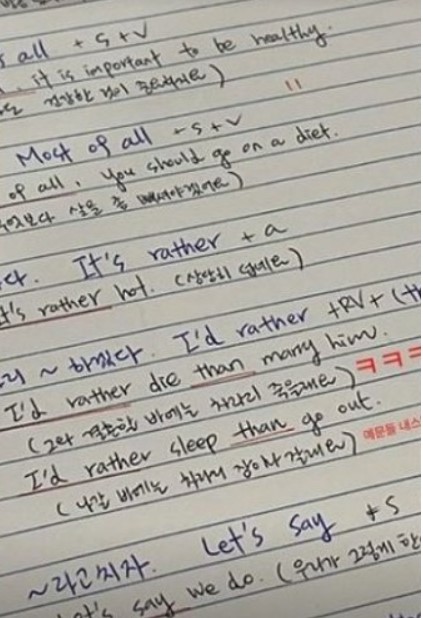 all + S + V
it is important to be healthy.
건강한 것이 중요해요)
Most of all + S + V
of all, you should go on a diet.
살을 좀 빼셔야겠어요)
It's rather + a
's rather hot. (상당히 덥네요)
~ 하겠다. I'd rather +RV+ (th
I'd rather die than marry him.
(그와 결혼할 바에는 차라리 죽을래요) ㅋㅋㅋ
I'd rather sleep than go out.
(나갈 바에는 차라리 잠이나 잘래요) 예문들 내스
~라고 치자. Let's say + S
say we do. (우리가 그렇게 한